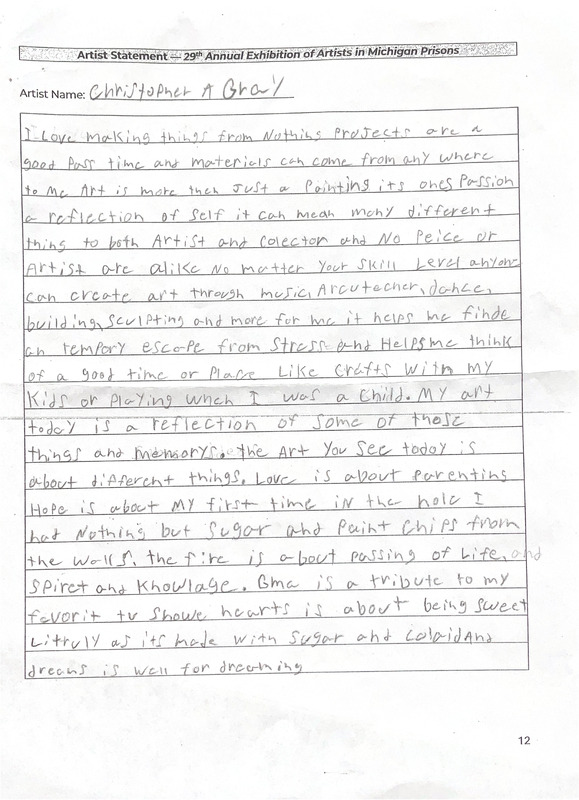 Artist Statement — 29th Annual Exhibition of Artists in Michigan Prisons
Artist Name: Christopher A Gray
I Love making things from Nothing Projects are a
good Pass time and materials can come from any where
to me Art is more then Just a Painting its ones Passion
a reflection of self it can mean many different
thing to both Artist and Colector and No Peice or
Artist are alike No matter Your skill Level anyone
can create art through music, Arcutecher, dance,
building, sculpting and more for me it helps me finde
an tempory escope from Stress and Helps me think
of a good time or Place Like crafts with my
Kids or Playing when I was a Child. MY art
today is a reflection of some of those
things and memorys. the Art You see today is
about diferent things. Love is about Parenting
Hope is about MY first time in the hole I
had Nothing but Sugar and Paint Chips from
the walls. the fire is about passing of Life, and
Spiret and Knowlage. Bma is a tribute to my
favorit tv showe hearts is about being sweet
Litruly as its made with Sugar and
dreans is well for dreaming
12